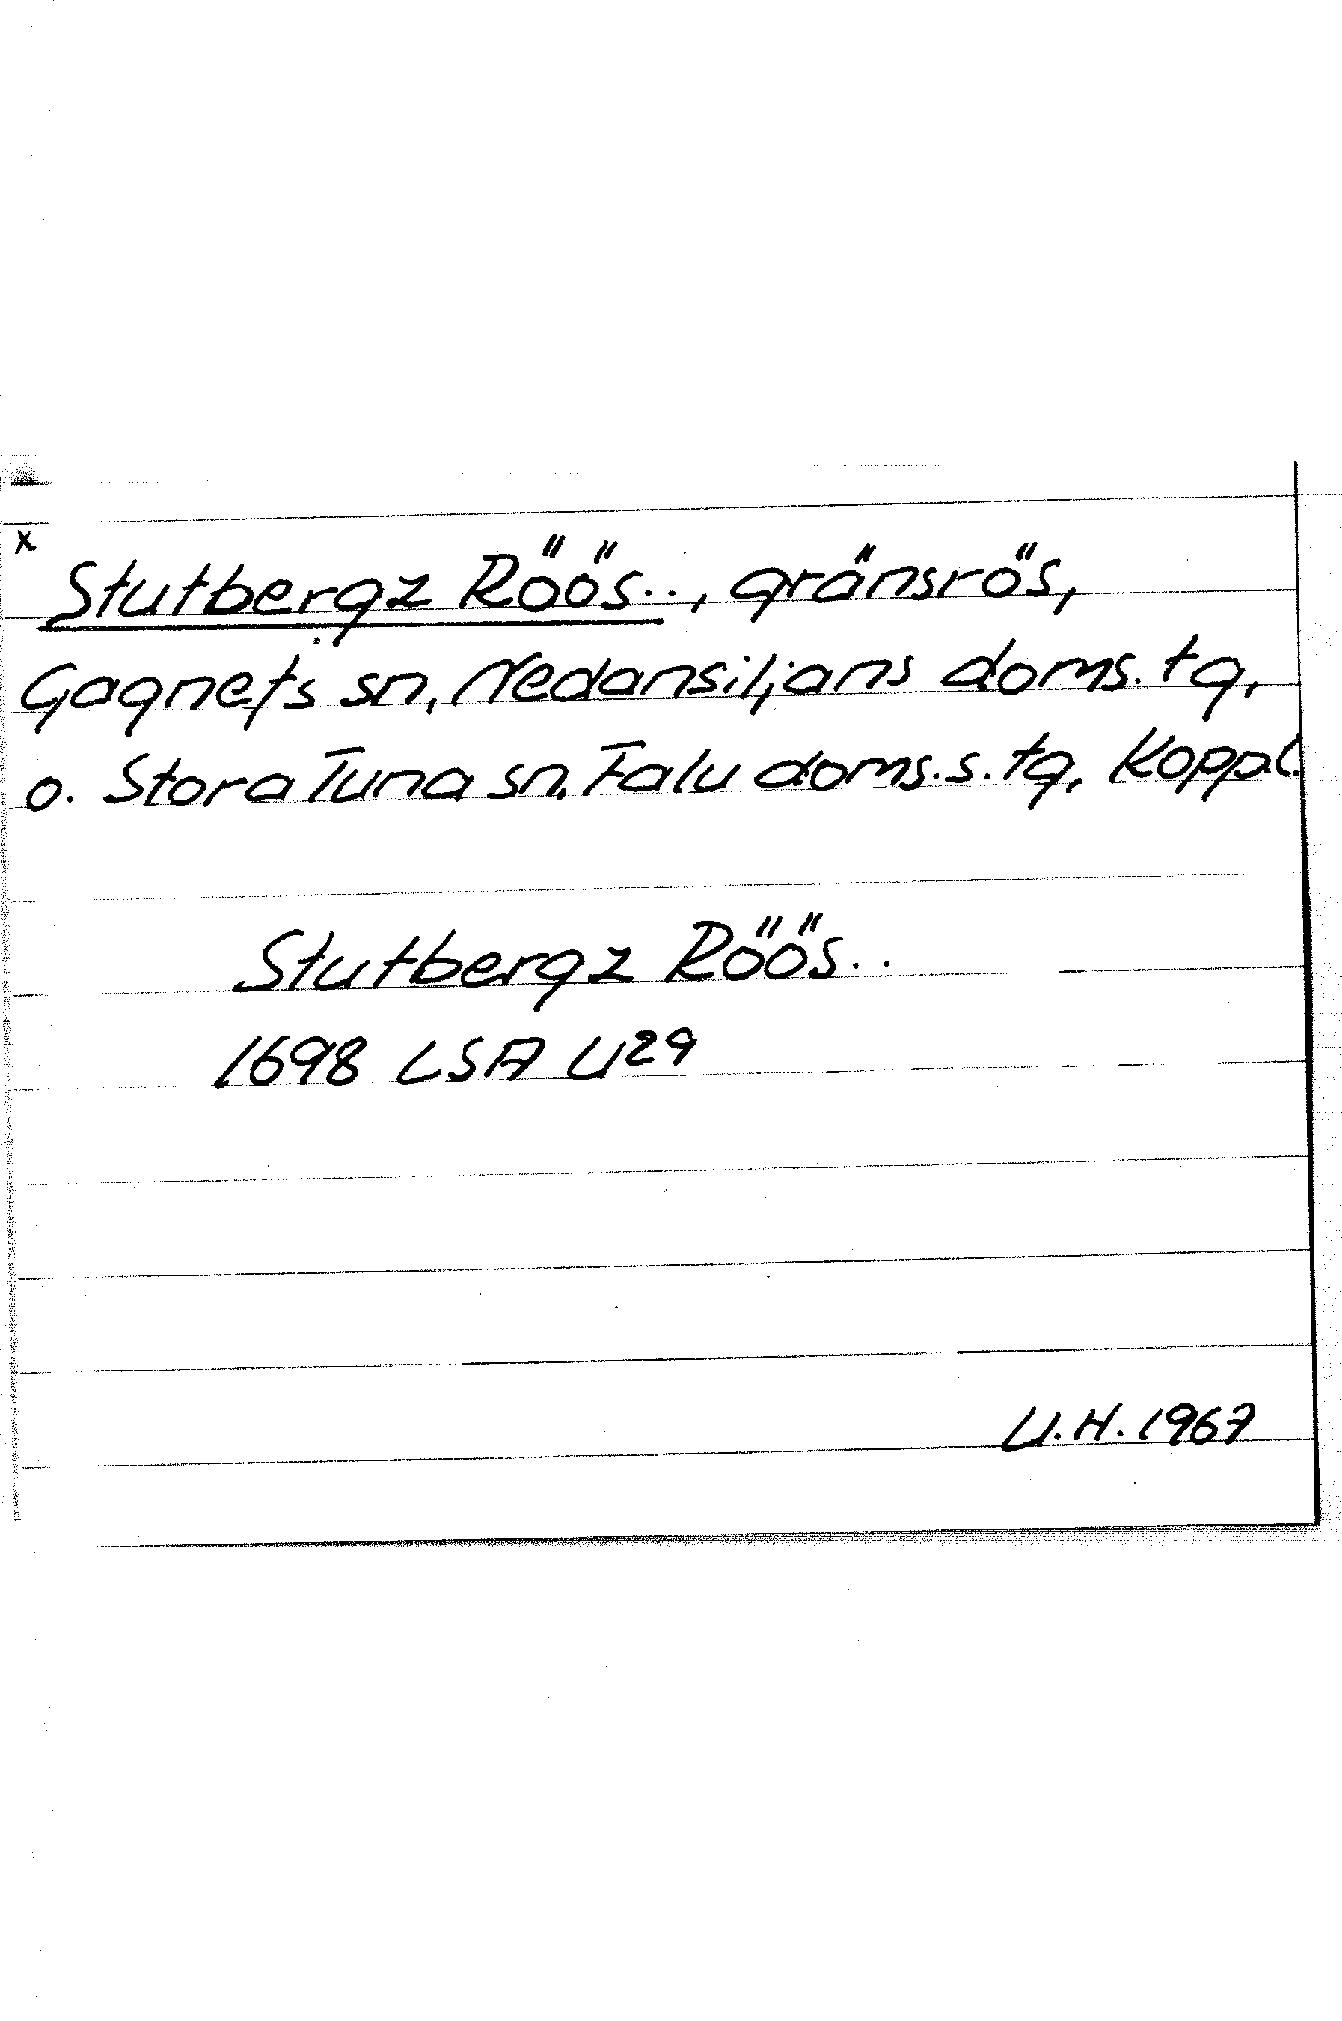 x
Stutbergz Röös.., gränsrös,
Gagnefs sn, Nedansiljans doms. tg,
o. Stora Tuna sn, Falu doms.s. tg, Koppl.
Stutbergz Röös..
1698 LSA U29
U.H. 1967